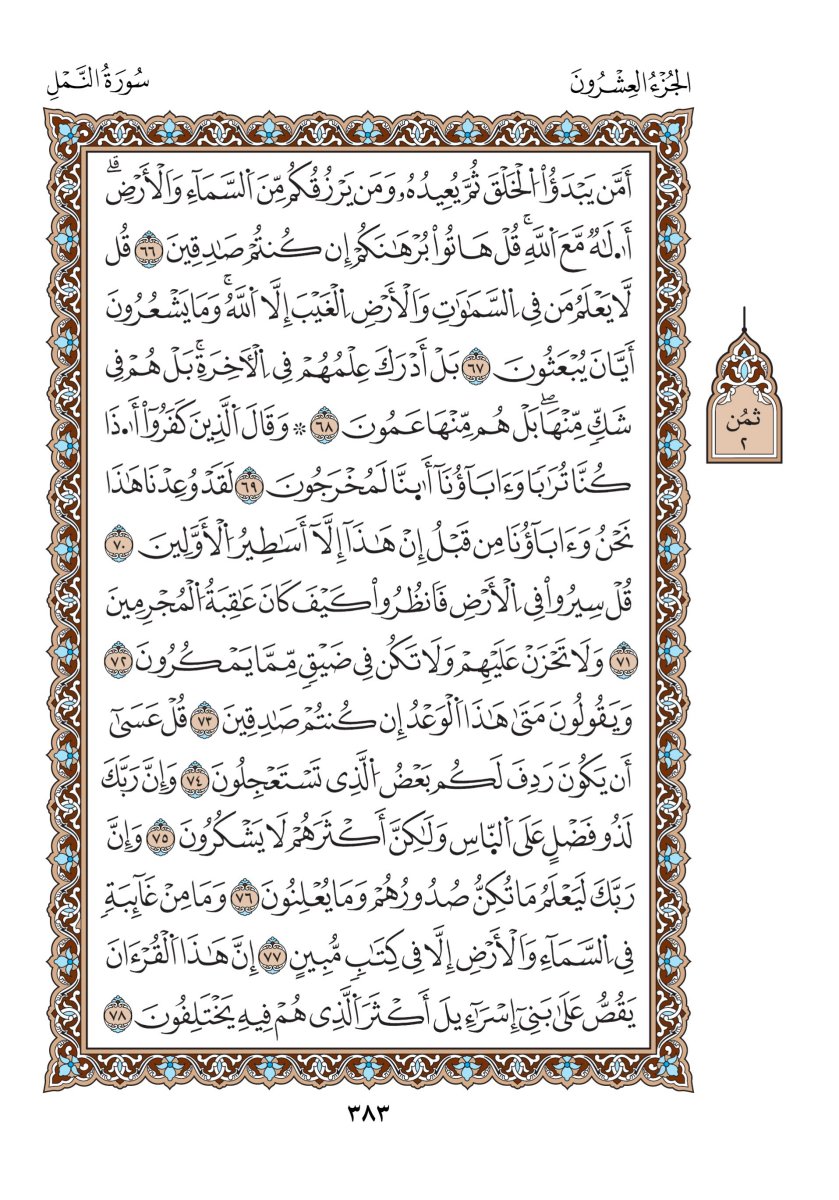 الجُزْءُ العِشْرُونَ
سُورَةُ النَّمْلِ
أَمَّن يَبْدَؤُا۟ اُ۬لْخَلْقَ ثُمَّ يُعِيدُهُۥ وَمَن يَرْزُقُكُم مِّنَ اَ۬لسَّمَآءِ وَالْأَرْضِۗ
أَ.لَٰهٌ مَّعَ اَ۬للَّهِۚ قُلْ هَاتُوا۟ بُرْهَٰنَكُمْ إِن كُنتُمْ صَٰدِقِينَ ٦٦ قُل
لَّا يَعْلَمُ مَن فِي اِ۬لسَّمَٰوَٰتِ وَالْأَرْضِ اِ۬لْغَيْبَ إِلَّا اَ۬للَّهُۚ وَمَا يَشْعُرُونَ
أَيَّانَ يُبْعَثُونَ ٦٧ بَلْ أَدْرَكَ عِلْمُهُمْ فِي اِ۬لْأٓخِرَةِۚ بَلْ هُمْ فِي
شَكٍّ مِّنْهَاۖ بَلْ هُم مِّنْهَا عَمُونَ ٦٨ ۞ وَقَالَ اَ۬لَّذِينَ كَفَرُوٓا۟ أَ.ذَا
كُنَّا تُرَٰبًا وَءَابَآؤُنَآ أَ.نَّا لَمُخْرَجُونَ ٦٩ لَقَدْ وُعِدْنَا هَٰذَا
نَحْنُ وَءَابَآؤُنَا مِن قَبْلُ إِنْ هَٰذَآ إِلَّآ أَسَٰطِيرُ اُ۬لْأَوَّلِينَ ٧٠
قُلْ سِيرُوا۟ فِي اِ۬لْأَرْضِ فَانظُرُوا۟ كَيْفَ كَانَ عَٰقِبَةُ اُ۬لْمُجْرِمِينَ
٧١ وَلَا تَحْزَنْ عَلَيْهِمْ وَلَا تَكُن فِي ضَيْقٍ مِّمَّا يَمْكُرُونَ ٧٢
وَيَقُولُونَ مَتَىٰ هَٰذَا اَ۬لْوَعْدُ إِن كُنتُمْ صَٰدِقِينَ ٧٣ قُلْ عَسَىٰٓ
أَن يَكُونَ رَدِفَ لَكُم بَعْضُ اُ۬لَّذِي تَسْتَعْجِلُونَ ٧٤ وَإِنَّ رَبَّكَ
لَذُو فَضْلٍ عَلَى اَ۬لنَّاسِ وَلَٰكِنَّ أَكْثَرَهُمْ لَا يَشْكُرُونَ ٧٥ وَإِنَّ
رَبَّكَ لَيَعْلَمُ مَا تُكِنُّ صُدُورُهُمْ وَمَا يُعْلِنُونَ ٧٦ وَمَا مِنْ غَآئِبَةٍ
فِي اِ۬لسَّمَآءِ وَالْأَرْضِ إِلَّا فِي كِتَٰبٍ مُّبِينٍ ٧٧ إِنَّ هَٰذَا اَ۬لْقُرْءَانَ
يَقُصُّ عَلَىٰ بَنِيٓ إِسْرَآءِيلَ أَكْثَرَ اَ۬لَّذِي هُمْ فِيهِ يَخْتَلِفُونَ ٧٨
ثُمُن
٢
٣٨٣